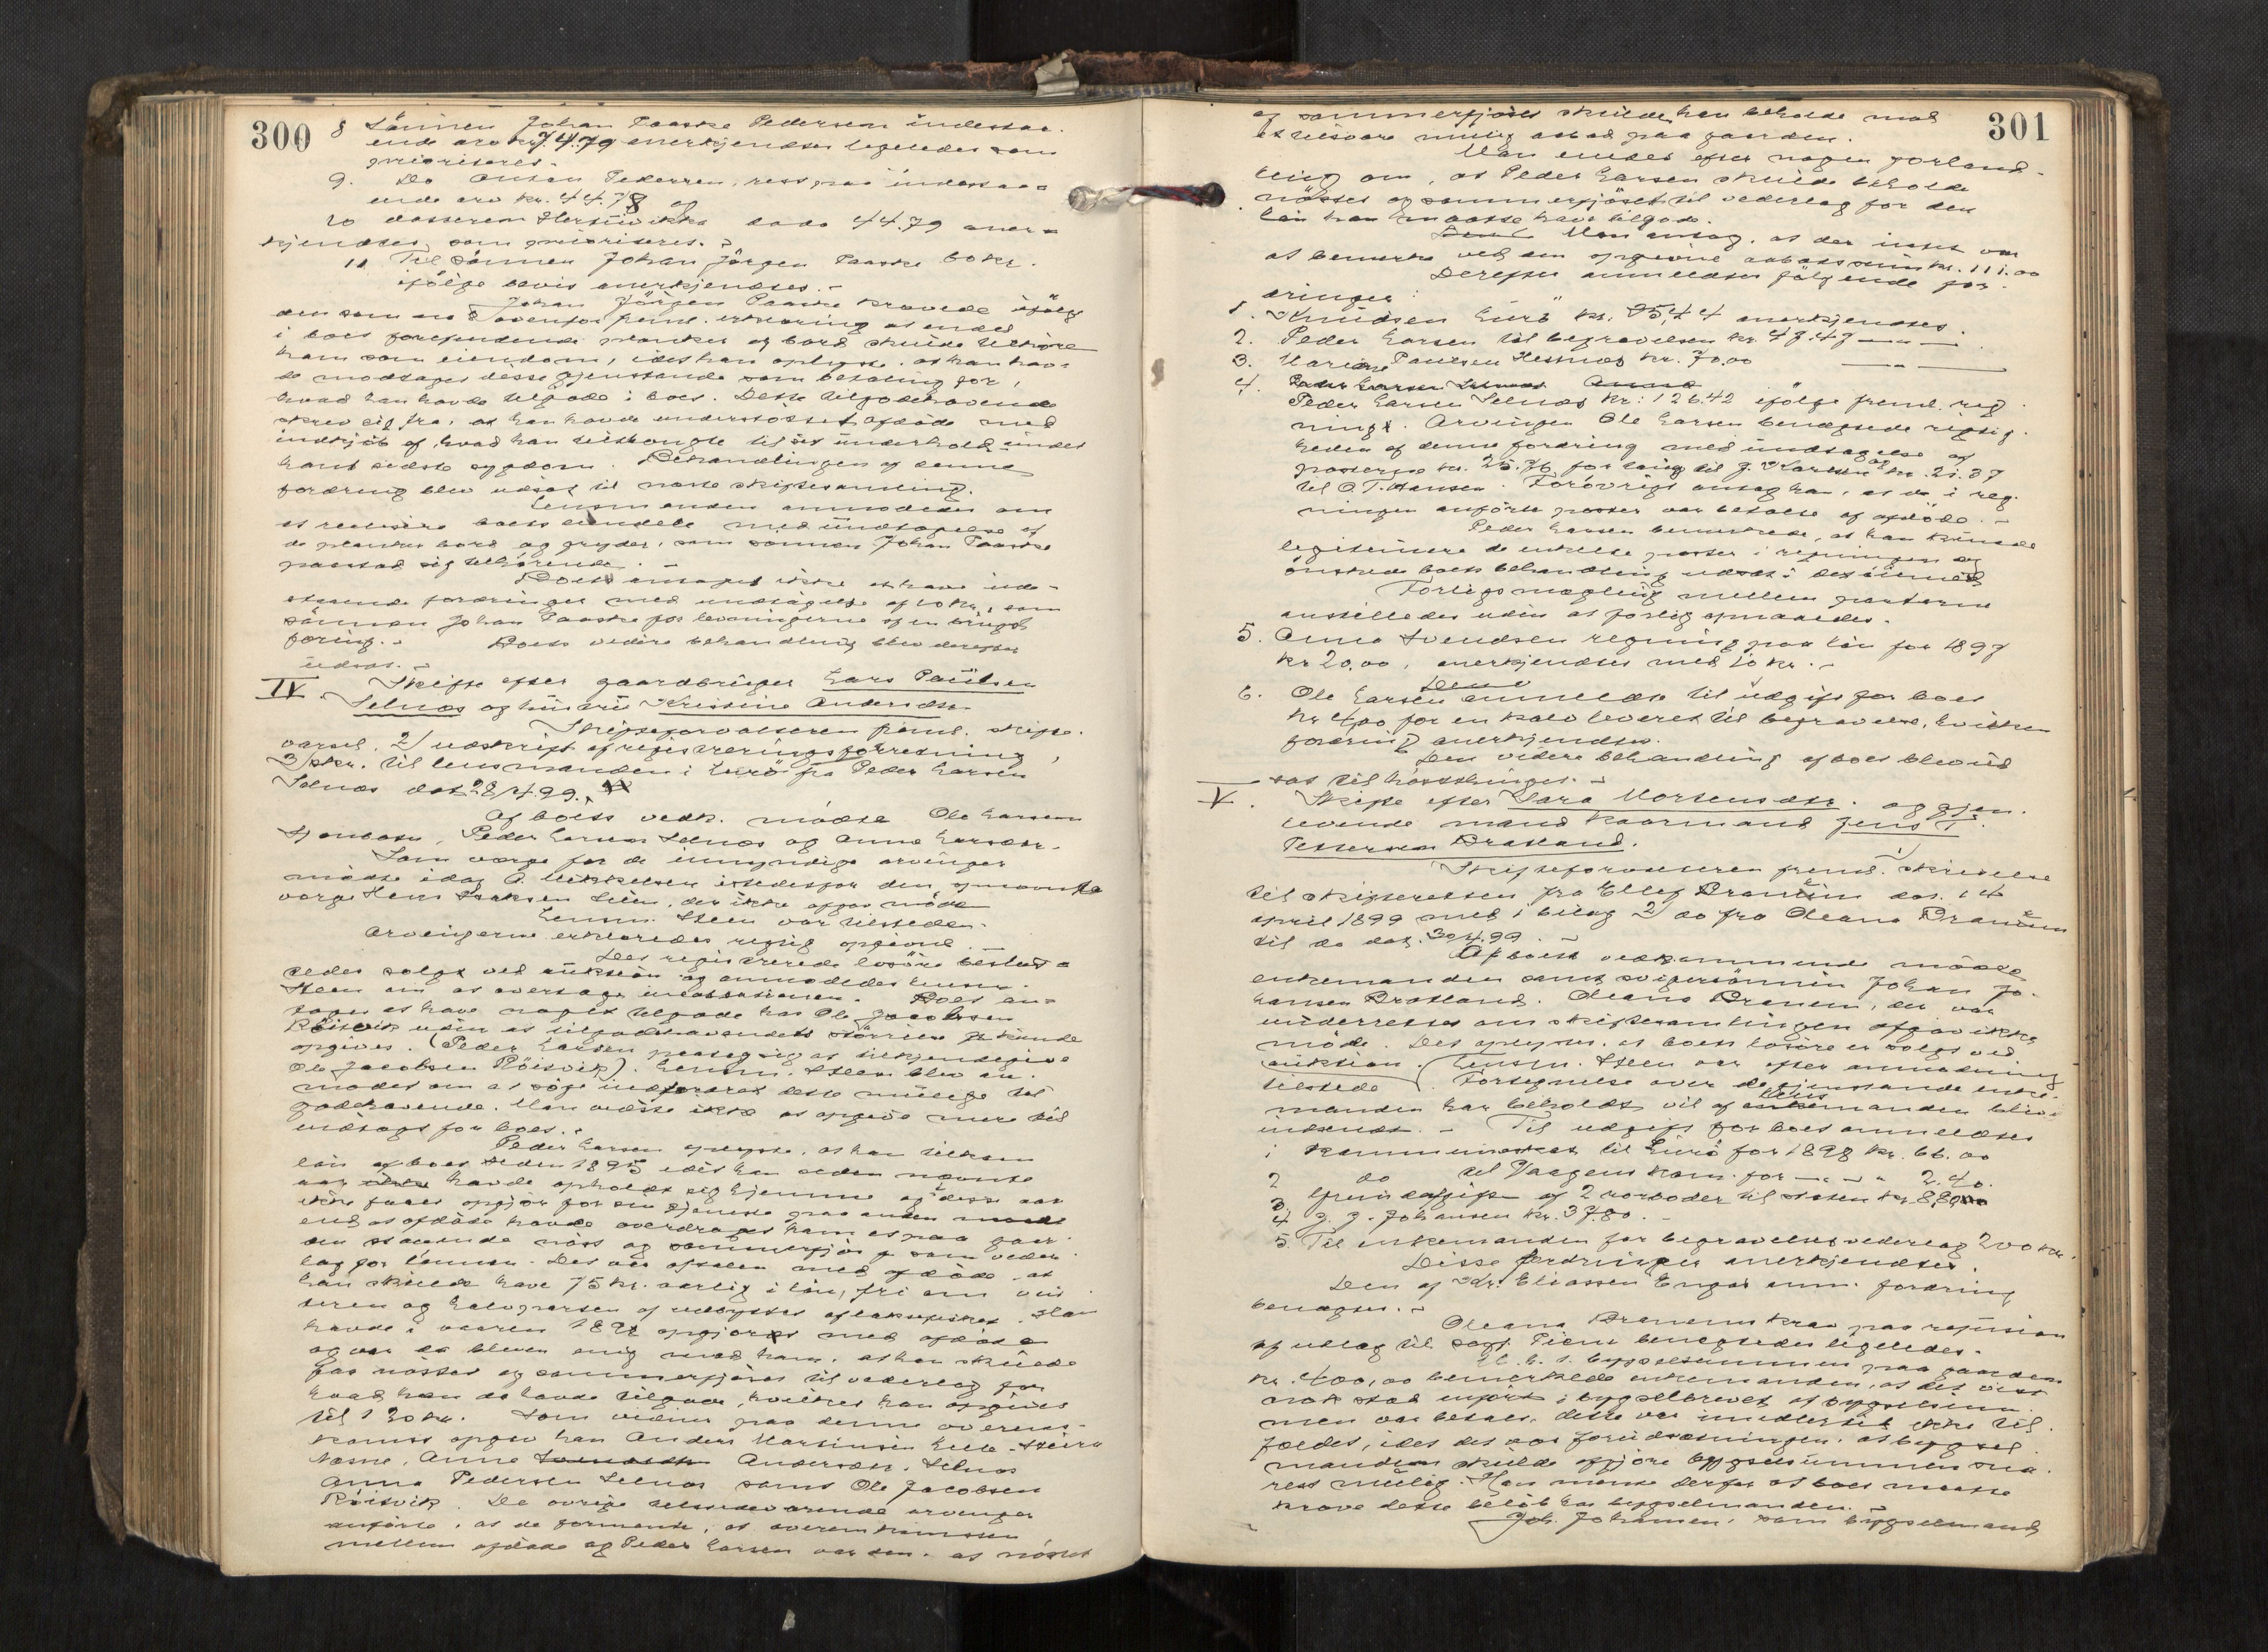 300
8 Sönnen Johan Paaske Pedersen indestaa-
ende arv kr. 74.79 anerkjendtes ligeledes som
prioriteret.
9. Do Anton Pedersen, rest paa indestaa-
ende arv kr. 44.78 og
10 datteren Hertinikka dado 44.79 aner-
kjendtes som prioriteret.
11 Til Sönnen Johan Jörgen Paaske 60 kr.
ifölge bevis anerkjendtes.
Johan Jörgen Paaske krævede ifölge
den som no ovenfor freml. erklæring at endel
i boet forefundende planker og bord skulde tilhöre
ham som eiendom, idet han oplyste, at han hav-
de modtaget disse gjenstande som betaling for,
hvad han havde tilgode i boet. Dette tilgodehavende
skrev sig fra, at han havde understöttet afdöde med
indkjöb af, hvad han tiltrængte til sit underhold under
hans sidste sygdom. Behandlingen af denne
fordring blev udsat til næste skiftesamling.
Lensmanden anmodedes om
at realisere boets eiendele med undtagelse af
de planker bord og gryder, som sönnen Johan Paaske
paastod sig tilhörende.
Boet antages ikke at have ude-
staaende fordringer med undtagelse af 10 kr., som
sönnen Johan Paaske for levningerne af en brugt
föring. Boets videre behandling blev derefter
udsat.
IV Skifte efter gaardbruger Lars Paulsen
Selnæs og hustru Kristine Andersdtr.
Skifteforvalteren freml. skifte-
varsel, 2) udskrift af registreringsforretning,
3) skr. til lensmanden i Lurö fra Peder Larsen
Selnæs dat 28/4.99.
Af boets vedk. mödte Ole Larsen
, Peder Larsen Selnæs og Anna Larsdtr.
Som værge for de umyndige arvinger
mödte idag A. Mikkelsen istedetfor den opnævnte
værge Hans Isaksen Lien, der ikke afgav möde
Lensm. Steen var tilstede.
Arvingerne erklæredes rigtig opgivne.
Det registrerede lösöre beslut-
tedes solgt ved auktion og anmodedes lensm.
Steen om at overtage inkassationen. Boet an-
tages at have noget tilgode hos Ole Jacobsen
Röisvik uden at tilgodehavendets störrelse kunde
opgives. (Peder Larsen paatog sig at tilkjendegive
Ole Jacobsen Röisvik). Lensm. Steen blev an-
modet om at söge indfordret dette mulige til-
godehavende. Man vidste ikke at opgive mere til
indtægt for boet.
Peder Larsen oplyste, at han tilkom
lön af boet siden 1895 idet han siden nævnte
aar havde opholdt sig hjemme og i disse aar
ikke faaet opgjör for sin tjeneste paa anden maade
end at afdöde havde overdraget ham et paa gaar-
den staaende nöst og sommerfjös som veder-
lag for lönnen. Det var aftalen med afdöde at
han skulde have 75 kr. aarlig i lön, fri om vin-
teren og halvparten af udbyttet af laksefisket. Han
havde i vaaren 1898 opgjort med afdöde
og var da bleven enig med ham, at han skulde
faa nöstet og sommerfjöset til vederlag for
hvad han da havde tilgode, hvilket han opgives
til 120 kr. Som vidner paa denne overens-
komst opgav han Anders Martinsen Lille-
Næsne, Anne Andersdtr. Selnæs
Anna Pedersen Selnæs samt Ole Jacobsen
Röisvik. De övrige tilstedeværende arvinger
anförte, at de formente, at overenskomsten
mellem afdöde og Peder Larsen var den, at nöstet
301
og sommerfjöset skulde han beholde mod
at tilsvare mulig aabod paa gaarden.
Man enedes efter nogen forhand-
ling om, at Peder Larsen skulde beholde
nöstet og sommerfjöset til vederlag for den
lön han maatte have tilgode.
Man antog, at der intet var
at bemerke ved den opgivne aabotssum kr. 111.00
Derefter anmeldtes fölgende for-
dringer:
1. Knudsen Lurö kr. 25,44 anerkjendtes.
2. Peder Larsen til begravelsen kr. 47.47 —„—
3. Marie Paulsen Hestnæs kr. 70.00 —„—
4. Peder Larsen Selnæs Anna
Peder Larsen Selnæs kr: 126.42 ifölge freml. reg-
ning. Arvingen Ole Larsen benægtede rigtig-
heden af denne fordring med undtagelse af
posterne kr. 25.76 for laug til J. Karlsen og kr. 21.37
til O. T. Hansen. Forövrigt antog han, at de i reg-
ningen anförte poster var betalt af afdöde.
Peder Larsen bemerkede, at han kunde
legitimere de enkelte poster i regningen og
önskede boets behandling udsat i det öiemed
Forligsmægling mellem parterne
anstilledes uden at forlig opnaaedes.
5. Anna Svendsen regning paa lön for 1897
kr 20.00, anerkjendtes med 10 kr.
6. Ole Larsen anmeldte til udgift for boet
kr 4,00 for en kalv leveret til begravelse, hvilken
fordring anerkjendtes.
Den videre behandling af boet blev ud-
sat til hösttinget.
V. Skifte efter Sara Mortensdtr. og gjen-
levende mand kaarmand Jens T.
Pettersen Bratland.
Skifteforvalteren freml. 1) skrivelse
til skifteretten fra Ellef Bramem dat. 14
april 1899 med 1 bilag 2) do fra Oleana Bramem
til do dat. 30/4.99.
Af boets vedkommende mödte
enkemanden samt svigersönnen Johan Jo-
hansen Bratland. Oleana Bramem, der var
underrettet om skiftesamlingen afgav ikke
möde. Det oplystes, at boets lösöre er solgt ved
auktion. (Lensm. Steen var efter anmodning
tilstede). Fortegnelse over de gjenstande enke-
manden har beholdt, vil af lensmanden blive
indsendt. Til udgift for boet anmeldtes
1 Kommuneskat til Lurö for 1898 kr. 66.00
2 do til Vaagens kom. for —„— „ 2.40.
3 Grundafgift af 2 rorboder til staten kr 8,80
4 J. J. Johansen kr. 37.80.
5. Til enkemanden for begravelsesvederlag 200 kr.
Disse fordringer anerkjendtes.
Den af Kr. Eliassen Engaas anm. fordring
benægtes.
Oleana Bramems krav paa refusion
af udlæg til sagf. Piene benægtedes ligeledes.
M. h. t. bygselsummen paa gaarden
kr. 400,00 bemerkede enkemanden, at det vist
nok stod anfört i bygselbrevet at bygselsum-
men var betalt, dette var imidlertid ikke til-
fældet, idet det var forudsætningen, at bygsel-
manden skulde opgjöre bygselsummen sna-
rest mulig. Han mente derfor at boet maatte
kræve dette belöb hos bygselmanden.
Joh. Johansen, som bygselmand